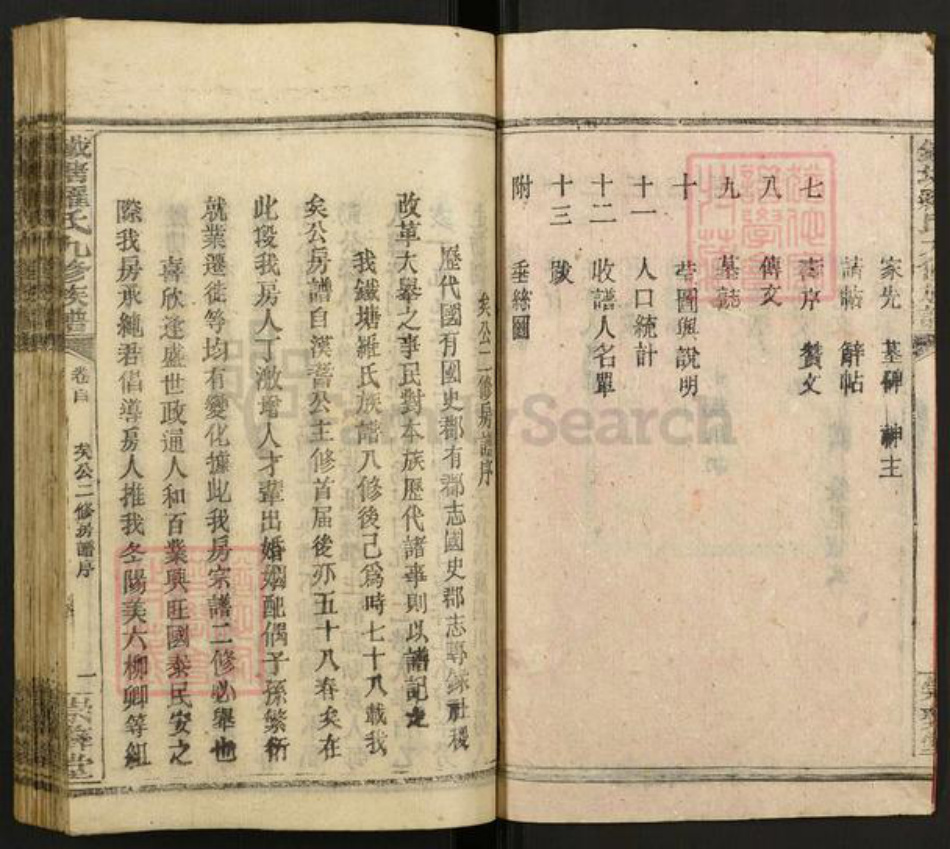 家先 墓碑 神主
請帖 辭帖
七 壽序 贊文
八 傳文
九 墓誌
十 塋圖與說明
十一 人口統計
十二 收譜人名單
十三 跋
附 垂絲圖
矣公二修房譜序
歷代國有國史郡有郡志國史郡志專錄社稷
改革大舉之事民對本族歷代諸事則以譜記之
我鐵塘羅氏族譜八修後己爲時七十八載我
矣公房譜自漢耆公主修首届後亦五十八春矣在
此段我房人丁激增人才輩出婚姻配偶子孫繁衍
就業遷徙等均有變化據此我房宗譜二修必舉也
喜欣逢盛世政通人和百業興旺國泰民安之
際我房承繩君倡導房人推我冬陽美六柳卿等組
鐵塘羅氏九修族譜
卷首
矣公二修房譜序
一
FamilySearch